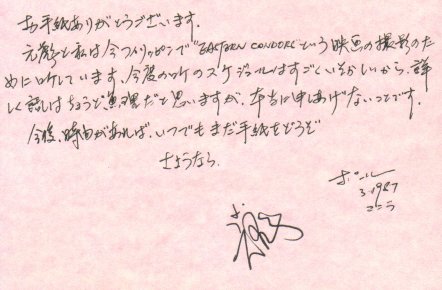 お手紙ありがとうございます。
元彪と私は今フィリッピンで"EASTERN CONDORS"という映画の撮影のた
めにロケしています、今度のロケのスケジュールはすごくいそがしいから、詳
しく話しはちょうど無理だと思いますが、本当に申しあげないつとです。
今後、時間があれば、いつでもまだ手紙をどうぞ
さようなら.
ポール
3.1987